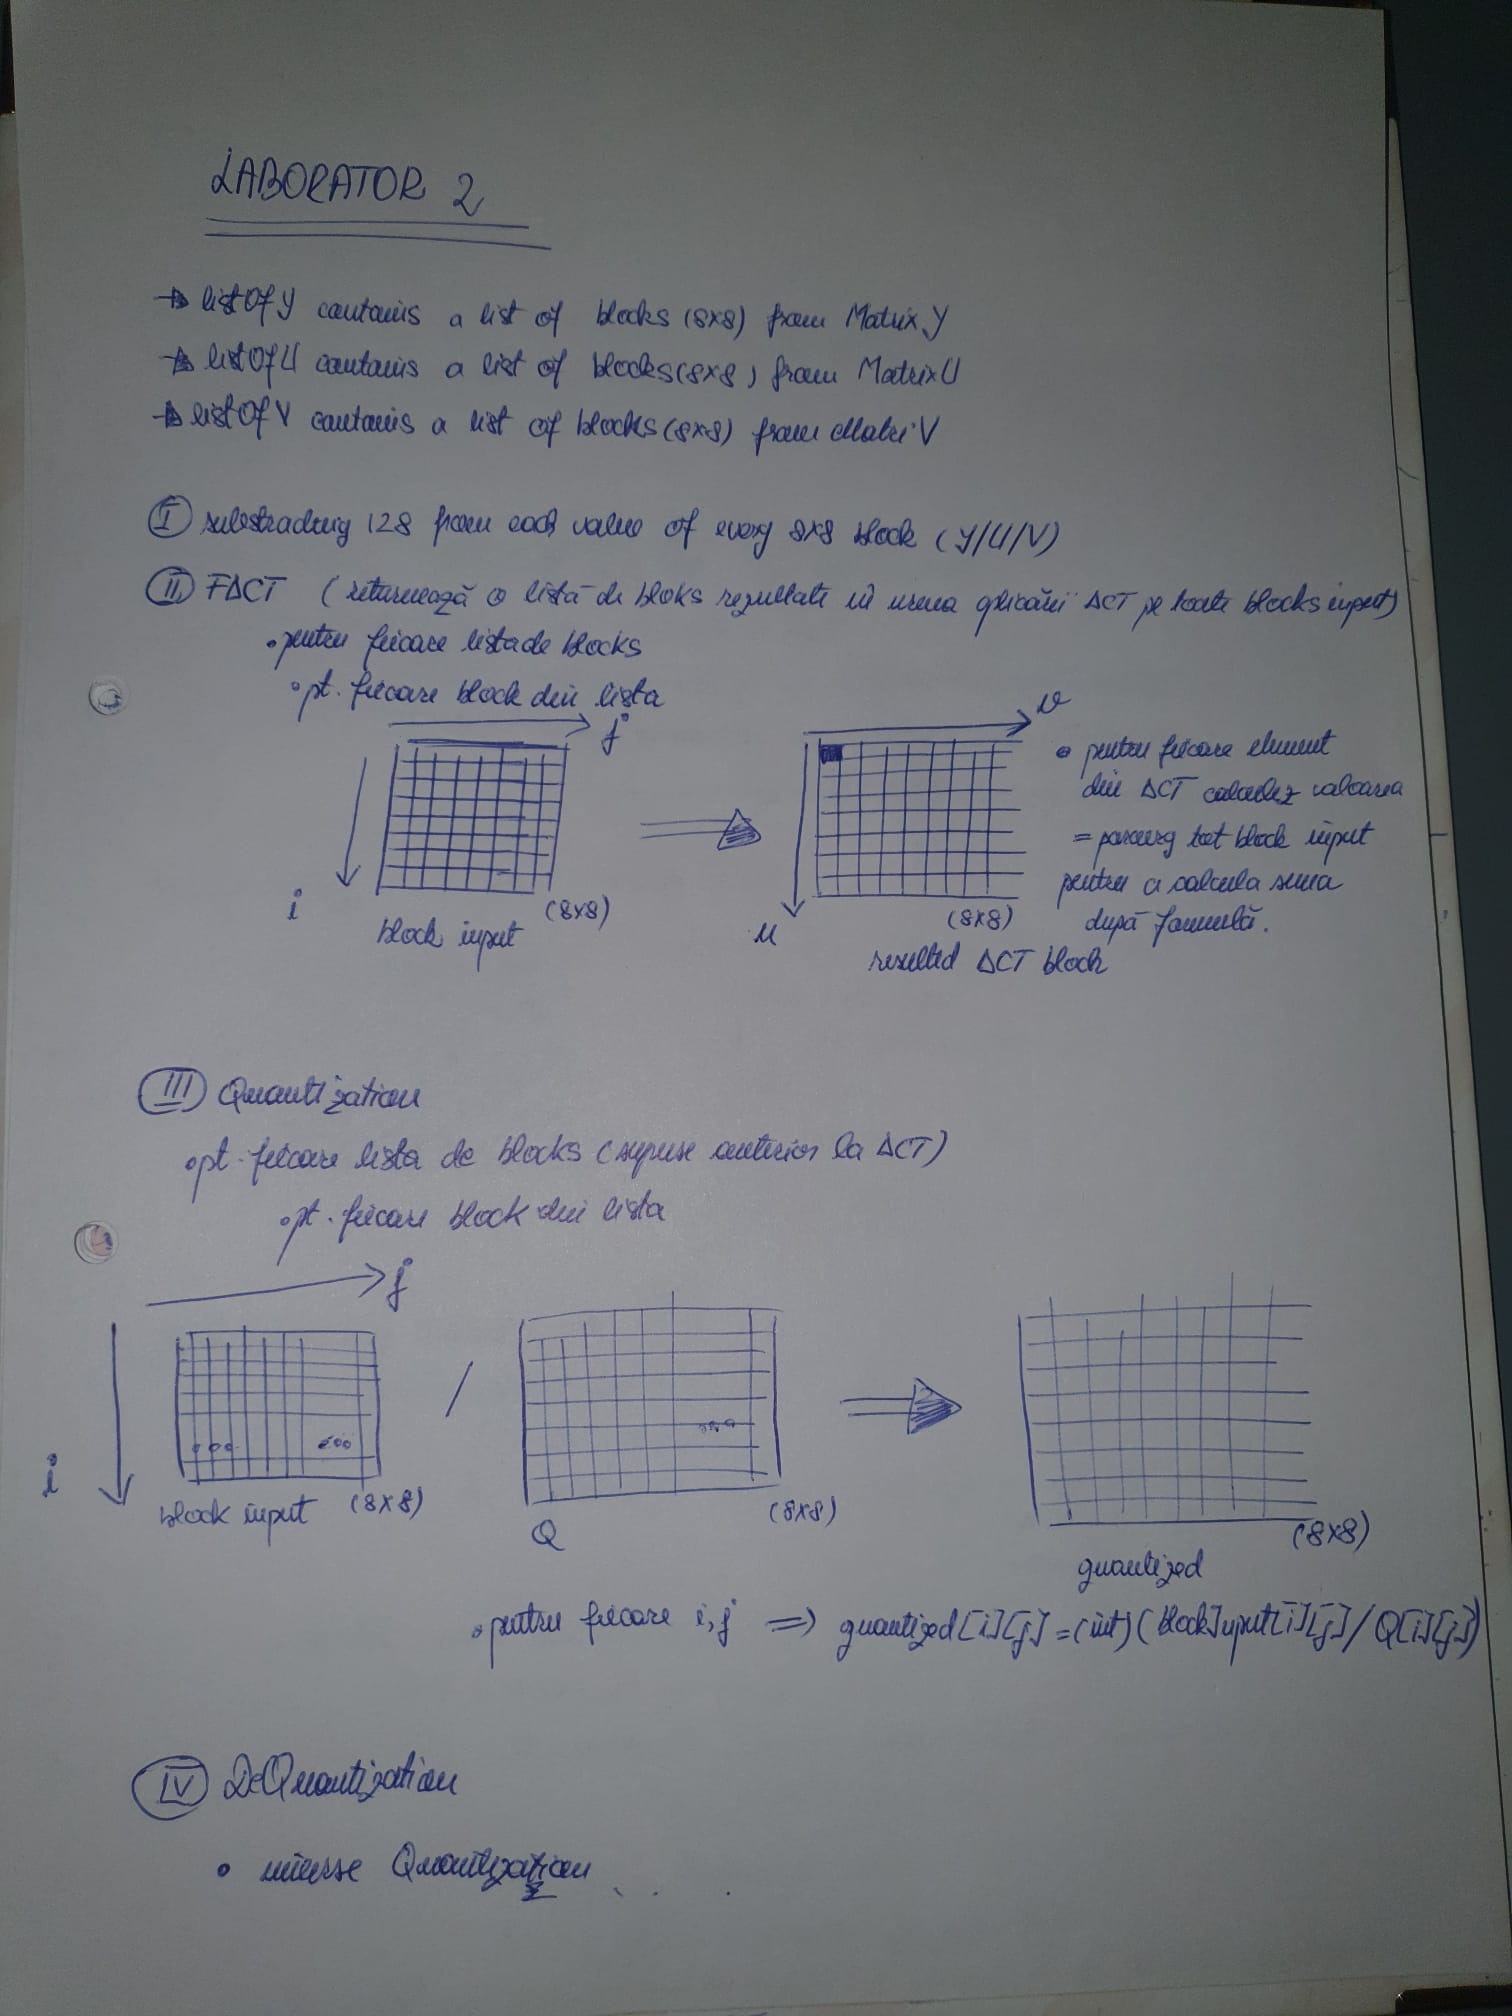 LABORATOR 2
→ listOfY contains a list of blocks (8x8) from MatrixY
→ listOfU contains a list of blocks (8x8) from MatrixU
→ listOfV contains a list of blocks (8x8) from MatriV
I substracting 128 from each value of every 8x8 block (Y/U/V)
II FDCT (returnează o listă de bloks rezultate în urma aplicării DCT pe toate blocks input)
• pentru fiecare lista de blocks
• pt. fiecare block din lista
j
i
block input
(8x8)
v
u
(8x8)
resulted DCT block
• pentru fiecare element
din DCT calculez valoarea
= parcurg tot block input
pentru a calcula suma
după formulă.
III Quantization
• pt. fiecare lista de blocks (supuse anterior la DCT)
• pt. fiecare block din lista
j
i
block input (8x8)
/
Q
(8x8)
quantized
(8x8)
• pentru fiecare i,j => quantized[i][j] = (int)(blockInput[i][j] / Q[i][j])
IV DeQuantization
• inverse Quantization